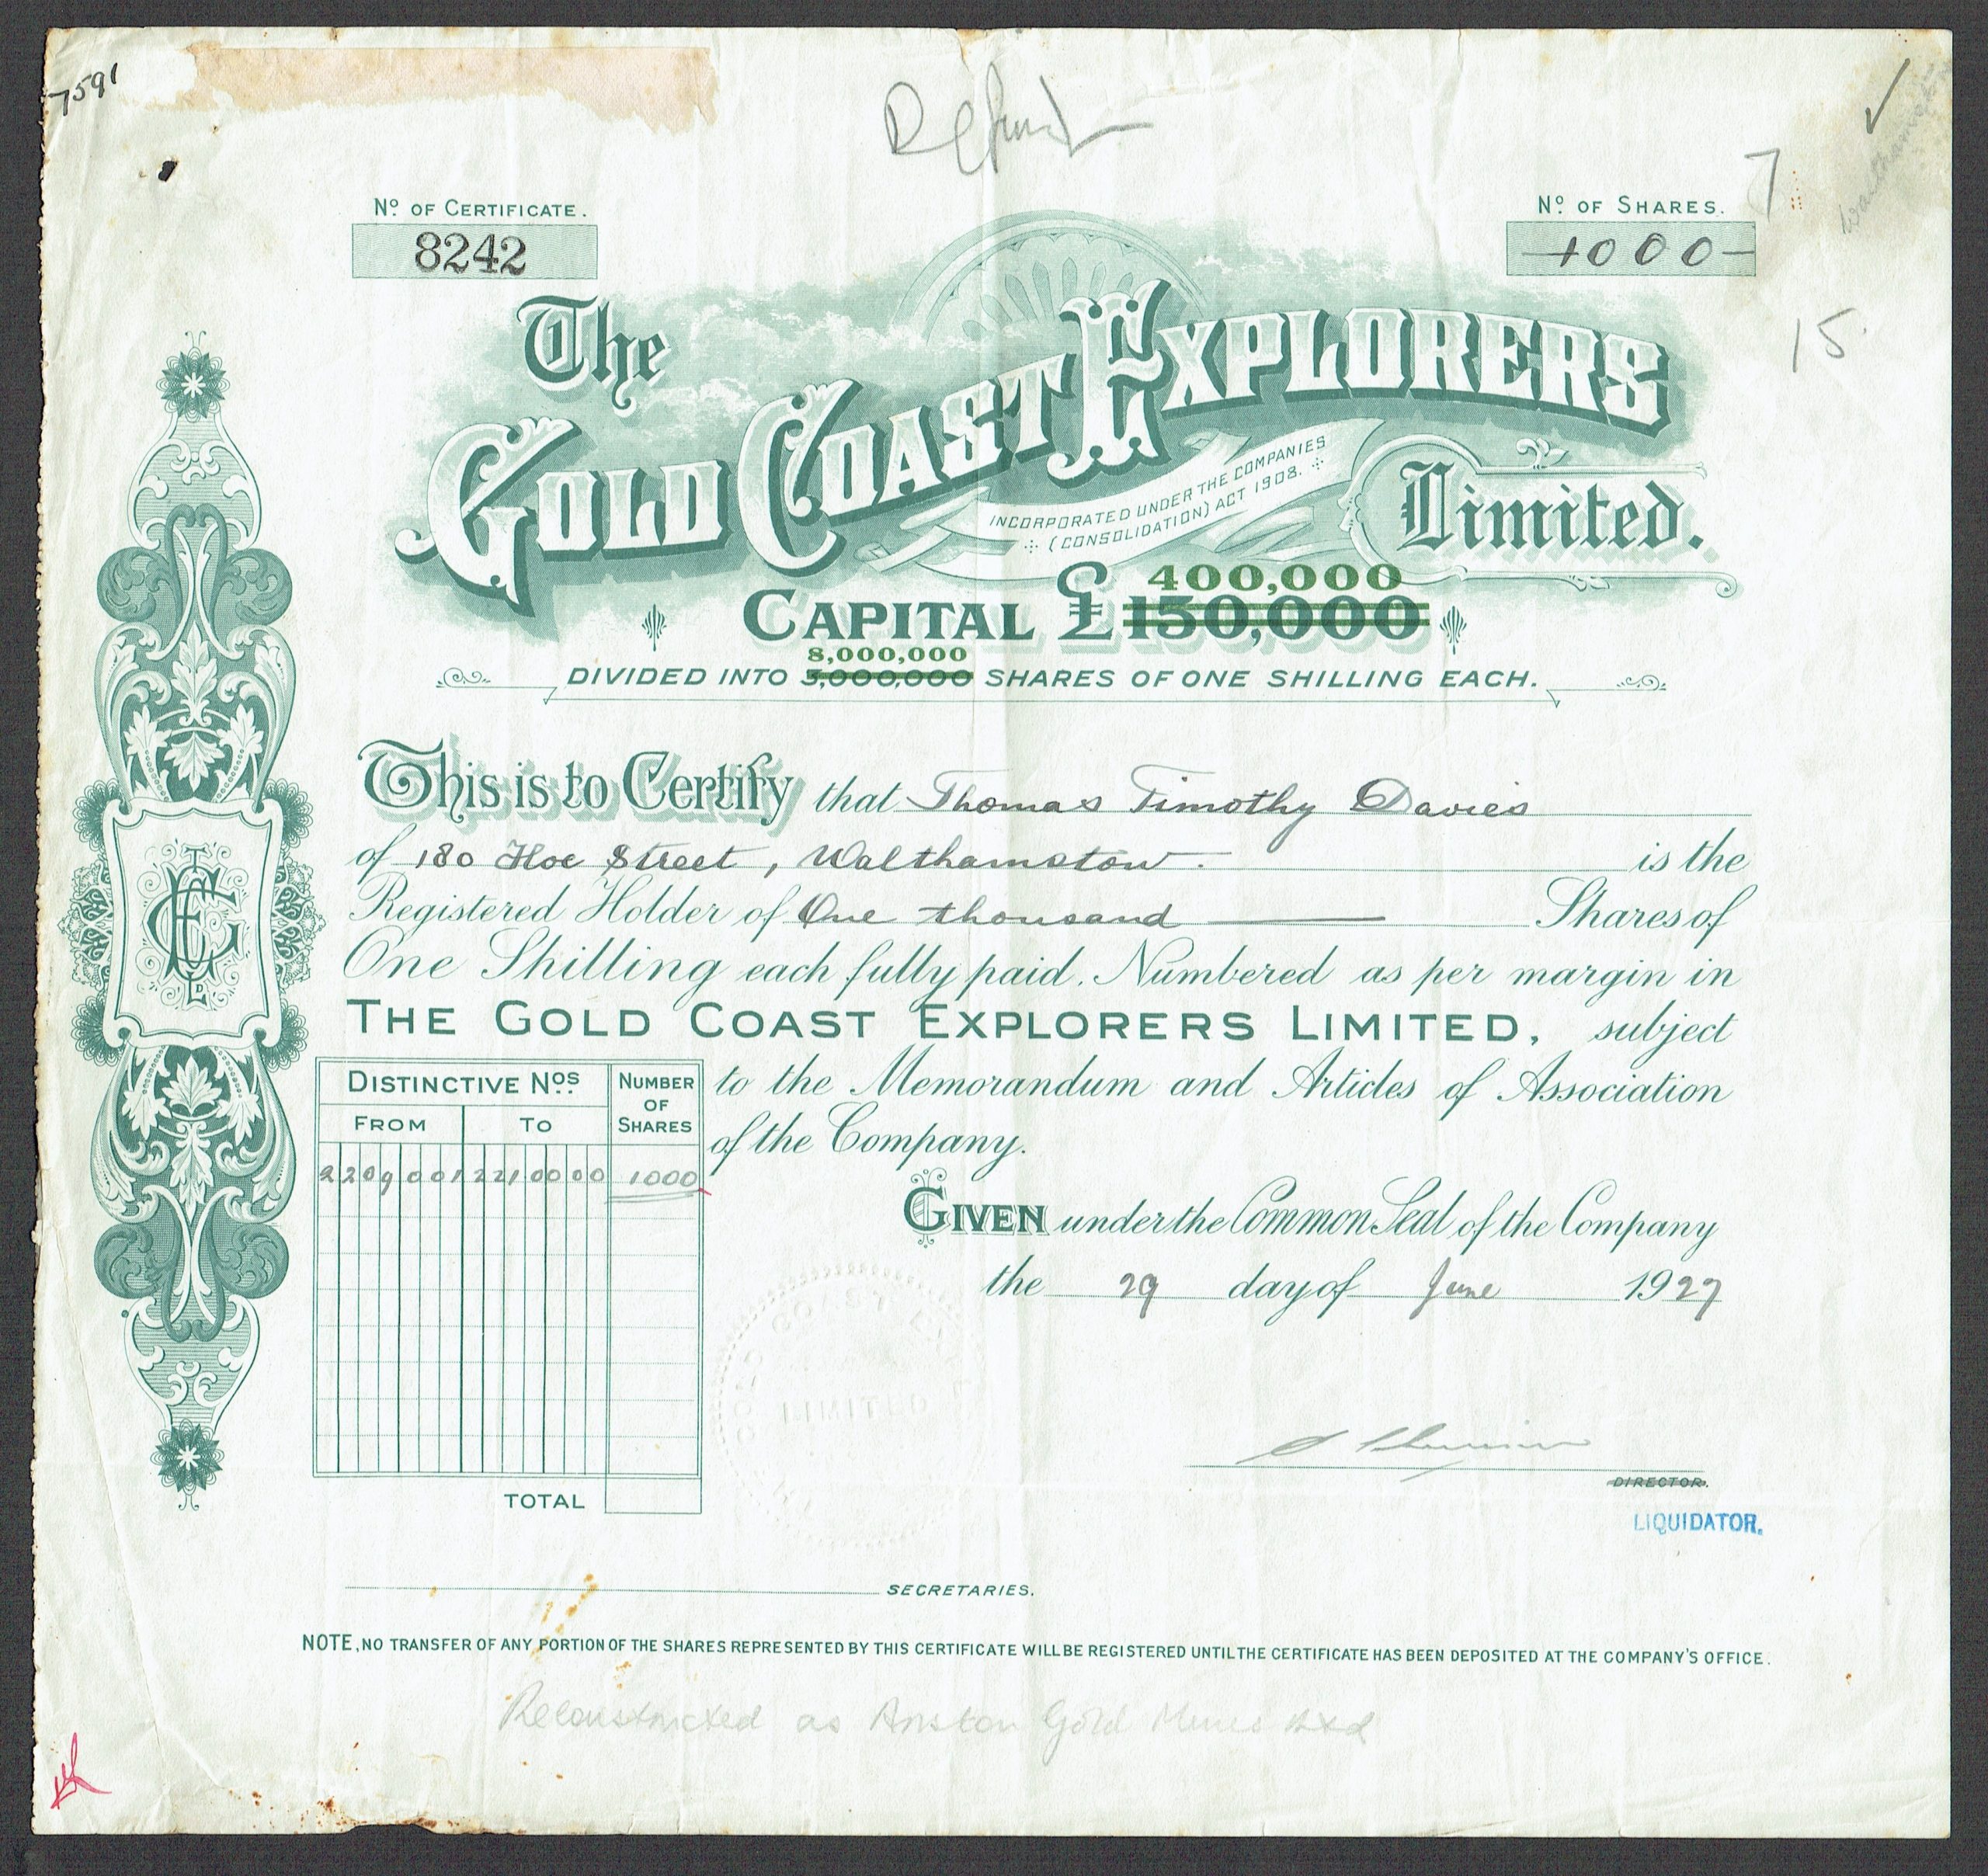 7591
Refund
Nº OF CERTIFICATE.
8242
Nº OF SHARES.
1000
7
Walthamstow
15.
The
GOLD COAST EXPLORERS
INCORPORATED UNDER THE COMPANIES
(CONSOLIDATION) ACT 1908.
Limited.
400,000
CAPITAL £150,000
8,000,000
DIVIDED INTO 3,000,000 SHARES OF ONE SHILLING EACH.
This is to Certify that Thomas Timothy Davies
of 180 Hoe Street, Walthamstow. is the
Registered Holder of One thousand Shares of
One Shilling each fully paid. Numbered as per margin in
THE GOLD COAST EXPLORERS LIMITED, subject
to the Memorandum and Articles of Association
of the Company.
DISTINCTIVE NOS
NUMBER OF SHARES
FROM TO
2209001 2210000 1000
TOTAL
GIVEN under the Common Seal of the Company
the 29 day of June 1927
DIRECTOR.
LIQUIDATOR.
SECRETARIES.
NOTE, NO TRANSFER OF ANY PORTION OF THE SHARES REPRESENTED BY THIS CERTIFICATE WILL BE REGISTERED UNTIL THE CERTIFICATE HAS BEEN DEPOSITED AT THE COMPANY'S OFFICE.
Reconstructed as Anston Gold Mines Ltd